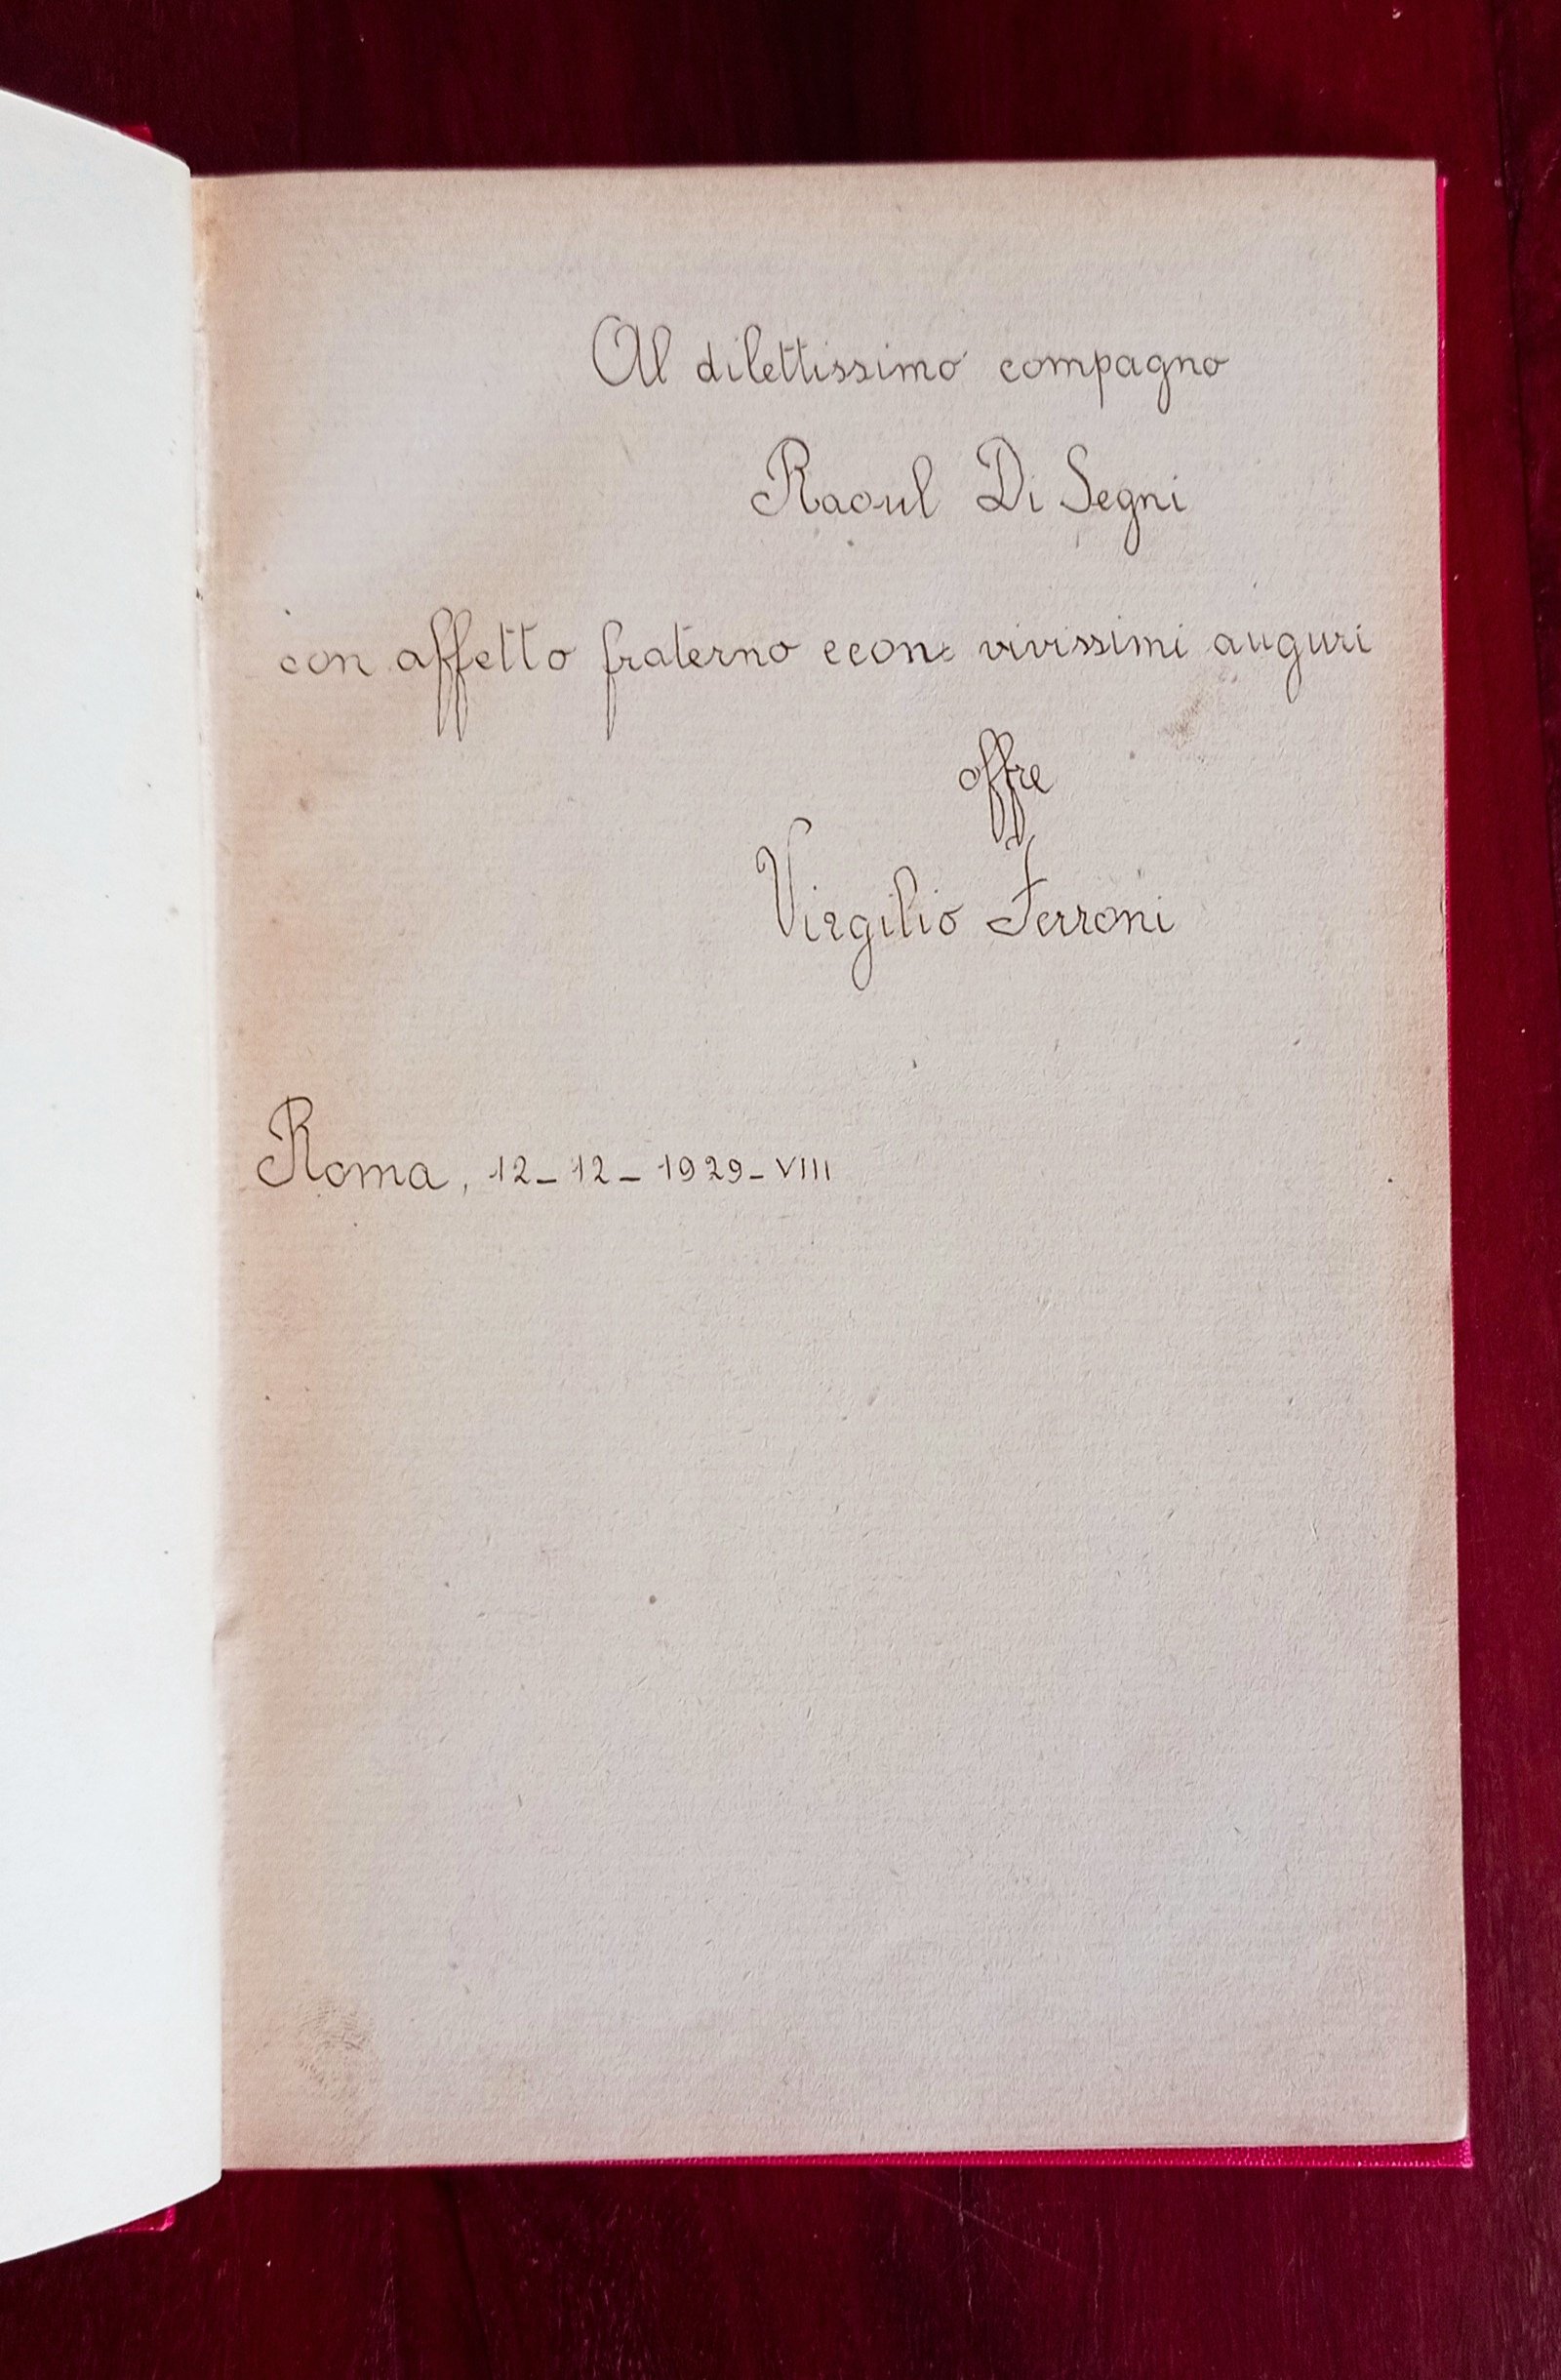 Al dilettissimo compagno
Raoul Di Segni
con affetto fraterno e con vivissimi auguri
offre
Virgilio Ferroni
Roma, 12-12-1929-VIII